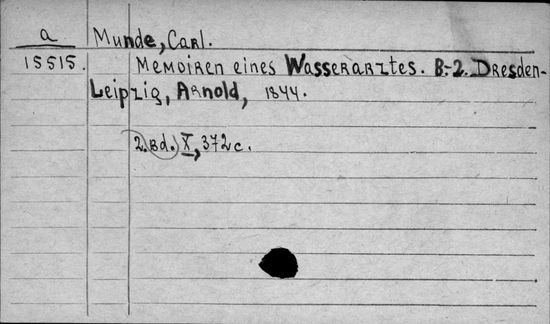 a Munde, Carl.
15515. Memoiren eines Wasserarztes. B.-2. Dresden-
Leipzig, Arnold, 1844.
2.Bd.) X, 372 c.